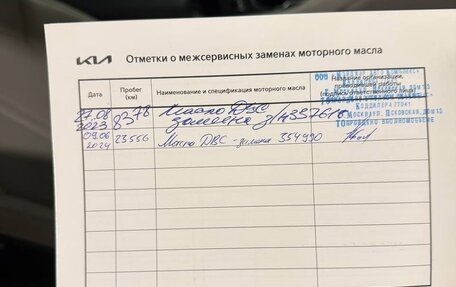 KIA Отметки о межсервисных заменах моторного масла
Дата
Пробег (км)
Наименование и спецификация моторного масла
Название организации, проводившей работы (подпись ответственного лица)
27.08 2023
8378
Масло ДВС замена
ООО
09.06 2024
23556
Масло ДВС - замена 354990